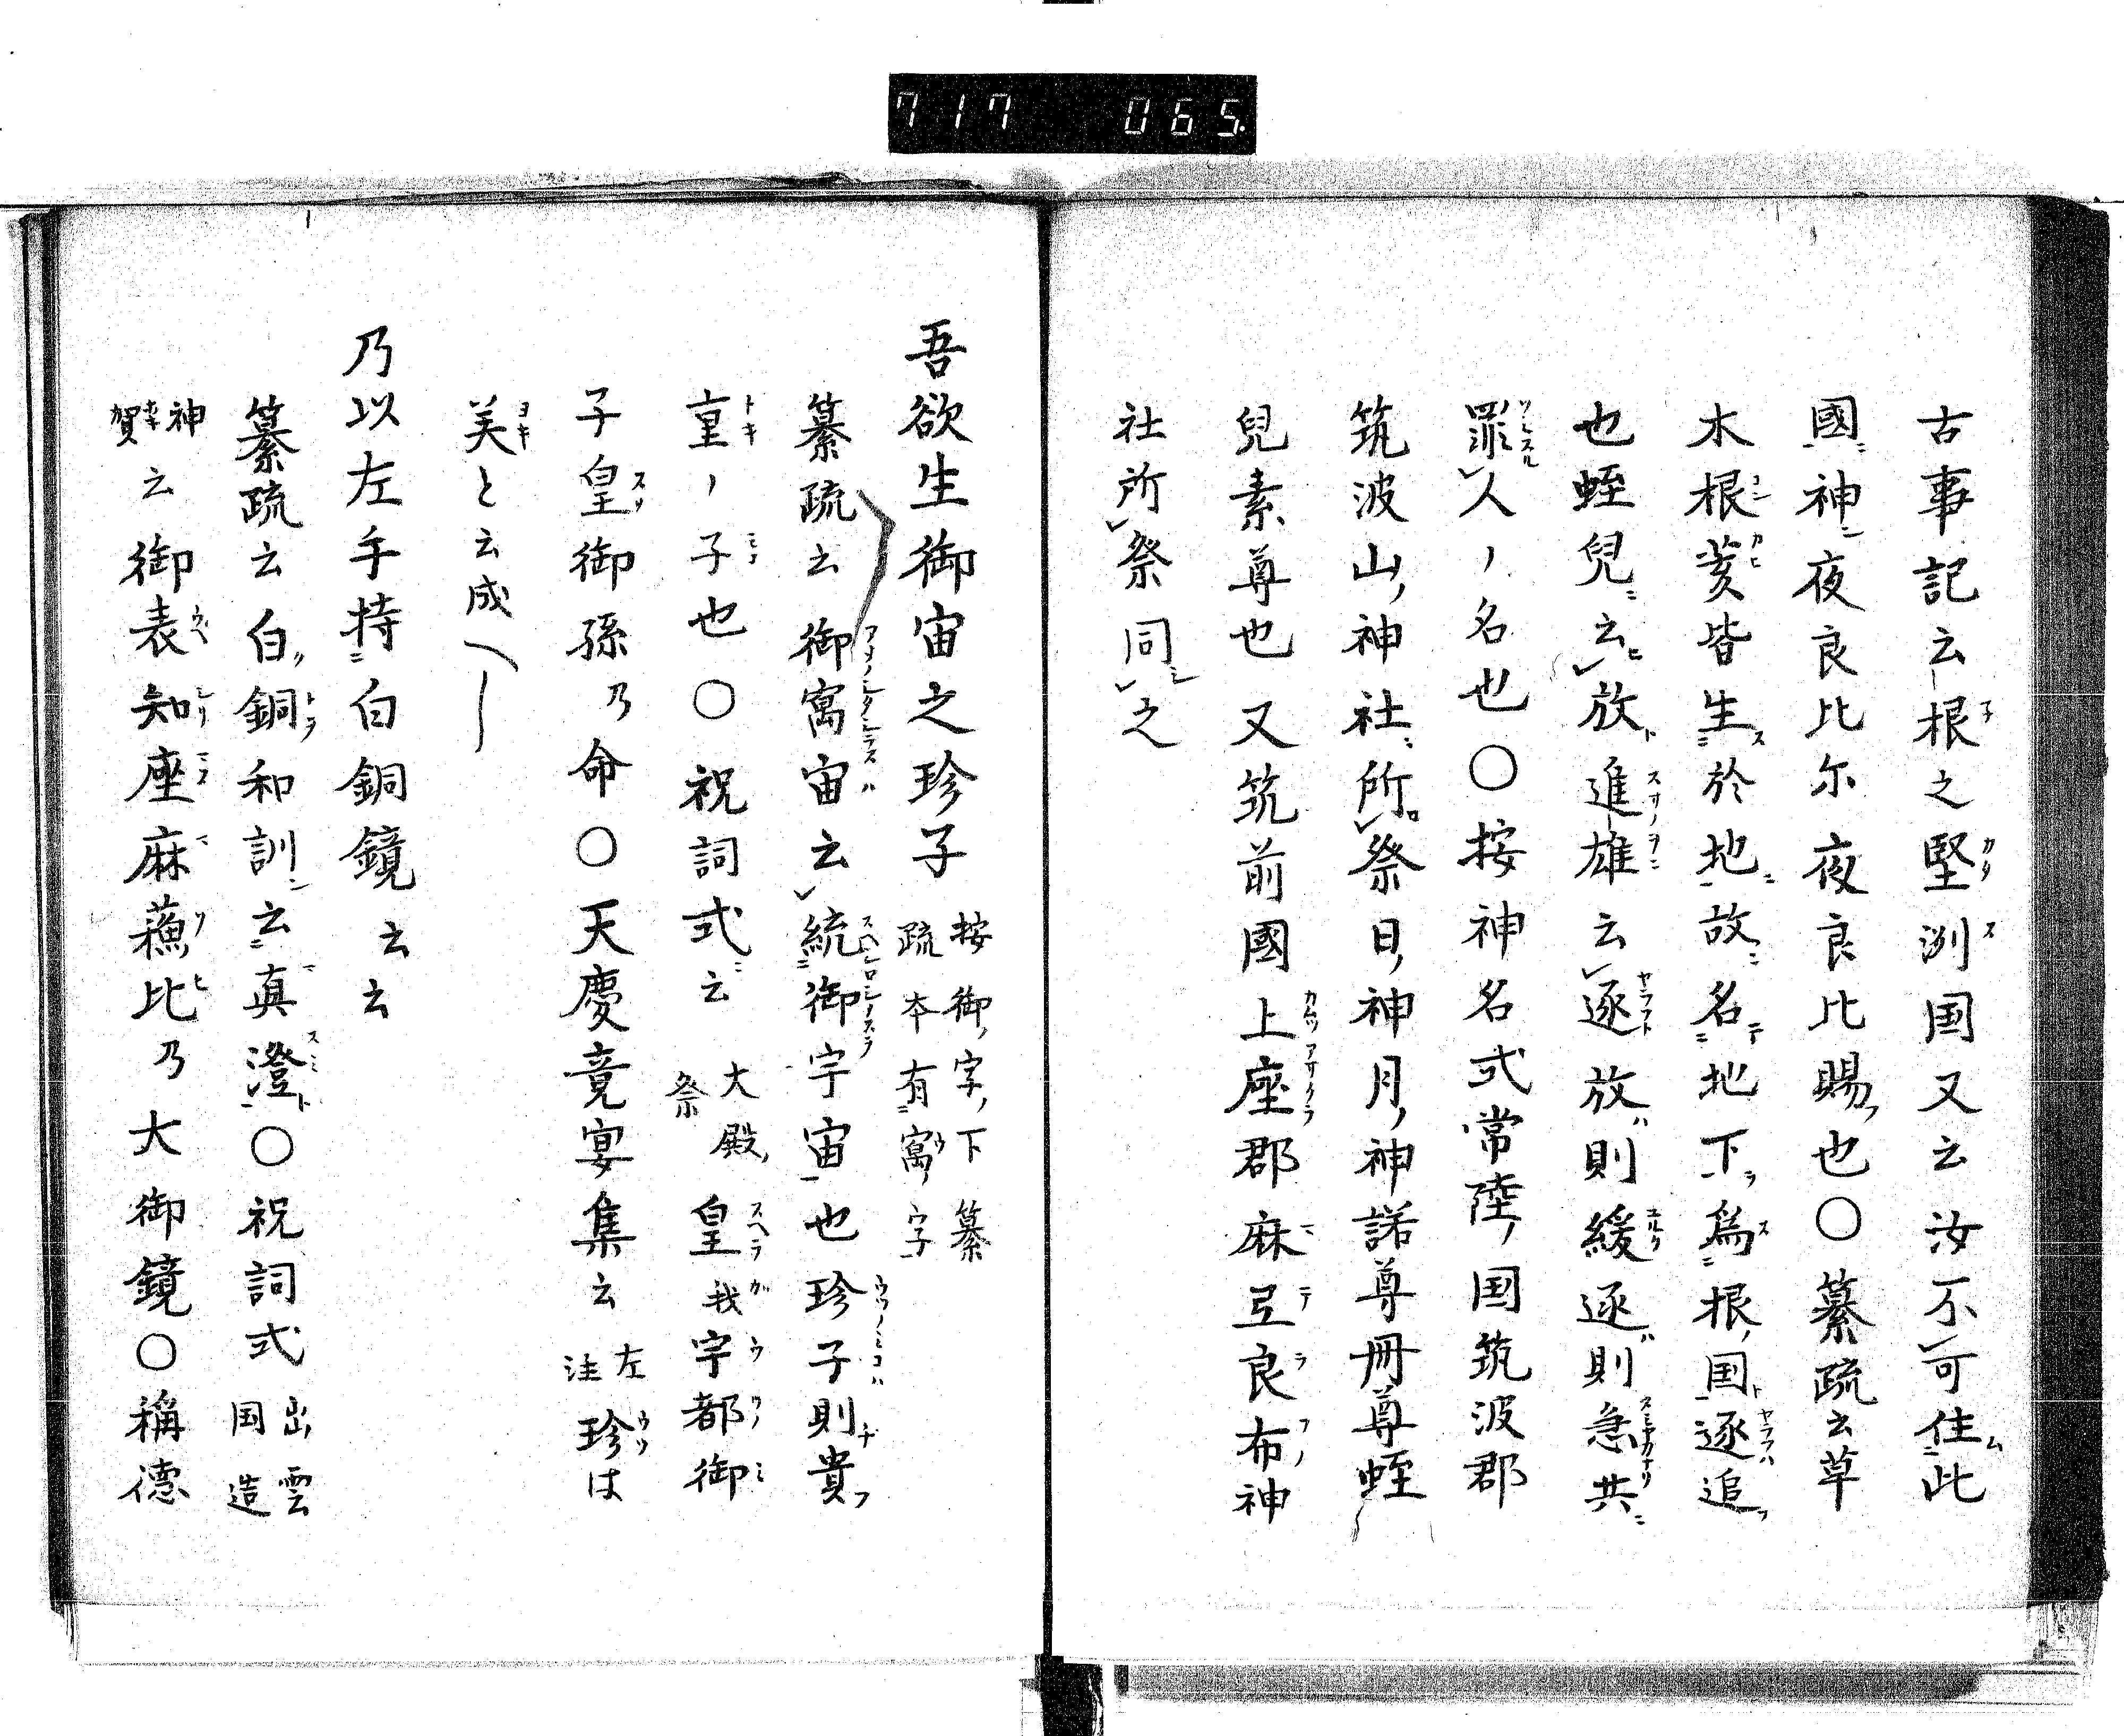 717 065
古事記云根之堅洲国又云汝不可住此
國神夜良比尓夜良比賜也〇纂疏云草
木根荄皆生於地故名地下為根国逐追
也蛭兒云放進雄云逐放則緩逐則急共
罪人ノ名也〇按神名式常陸国筑波郡
筑波山神社所祭日神月神諾尊冊尊蛭
兒素尊也又筑前國上座郡麻氐良布神
社所祭同之
吾欲生御宙之珍子 按御字下纂疏本有寓字
纂疏云御寓宙云統御宇宙也珍子則貴
重ノ子也〇祝詞式云 大殿祭 皇我宇都御
子皇御孫乃命〇天慶竟宴集云 左注 珍は
美と云成
乃以左手持白銅鏡云云
纂疏云白銅和訓云真澄〇祝詞式 出雲国造
神賀云御表知座麻蘓比乃大御鏡〇稱德